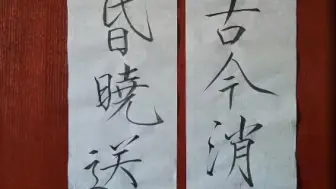 古今消
昏曉送